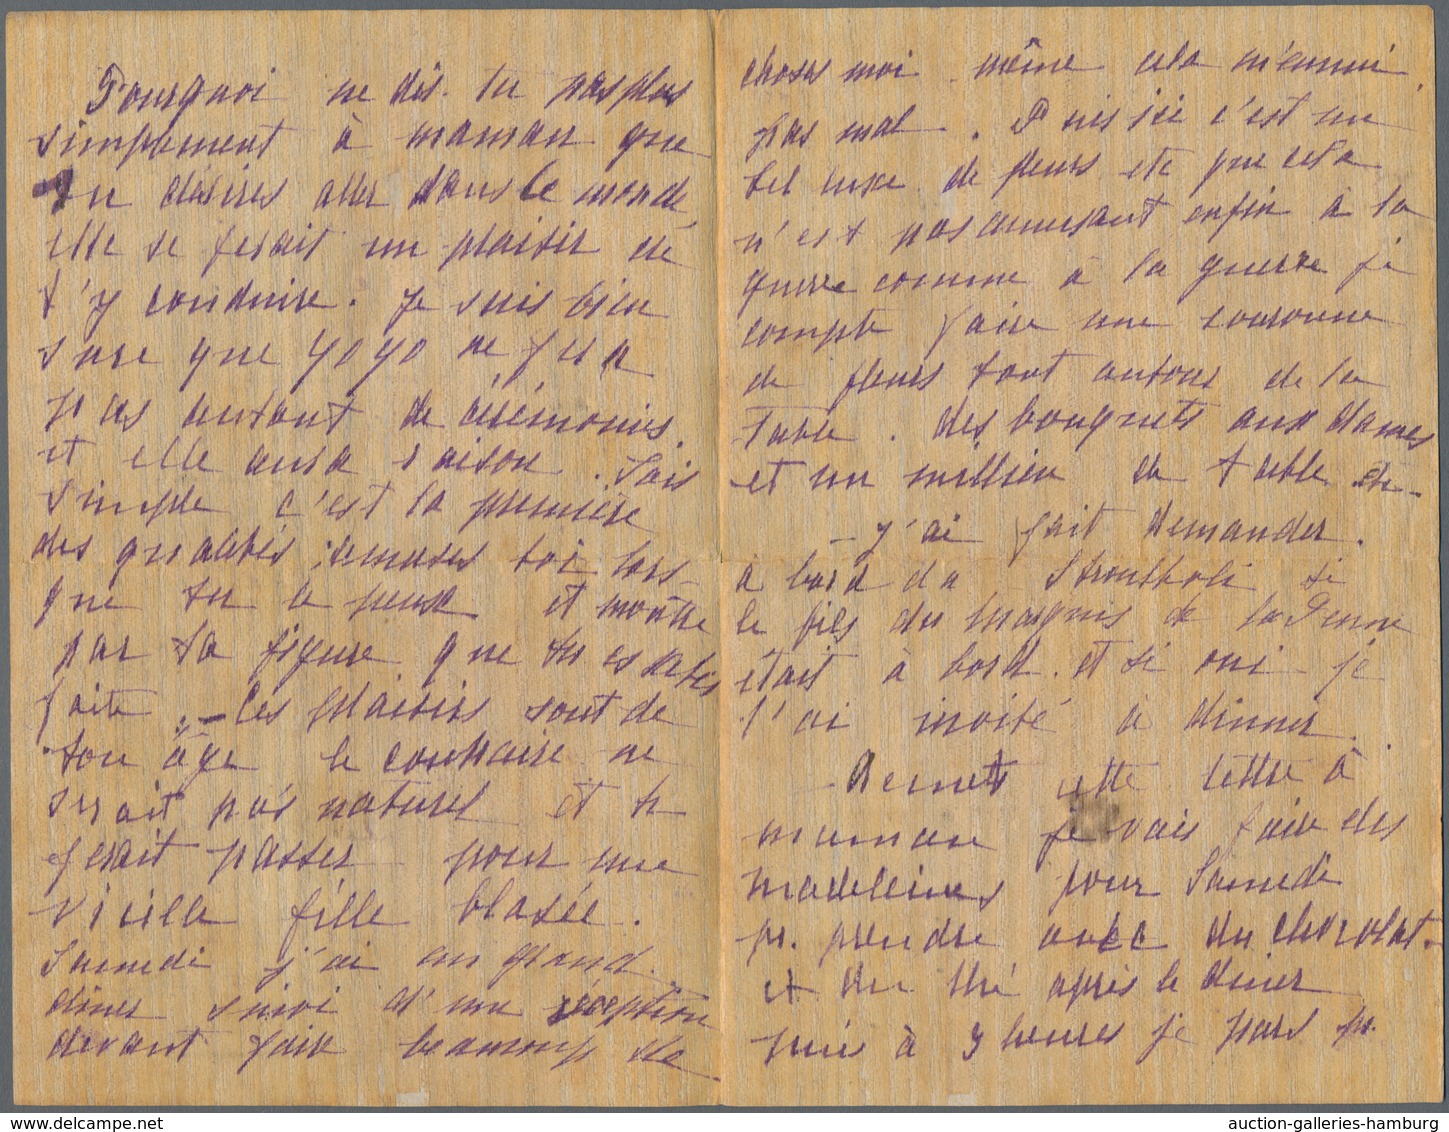 Pourquoi ne dis-tu pas plus
simplement à maman que
tu désires aller dans le monde
elle se ferait un plaisir de
t'y conduire. Je suis bien
sure que yoyo ne fera
pas autant de cérémonies.
et elle aura raison. Sois
simple c'est la première
des qualités, amuses toi lors-
que tu le peux et montre
par ta figure que tu es
faite. - Ces plaisirs sont de
ton âge le contraire ne
serait pas naturel et te
ferait passer pour une
vieille fille blasée.
Samedi j'ai un grand
diner suivi d'une réception
devant faire beaucoup de
choses moi-même cela m'ennui
pas mal. Puis ici c'est un
bel luxe de fleurs etc que cela
n'est pas amusant enfin à la
guerre comme à la guerre je
compte faire une couronne
de fleurs tout autour de la
table. des bouquets aux dames
et un millieu de table etc-
- J'ai fait demander
à bord du si
le fils du Marquis de
était à bord. et si oui - je
l'ai invité à dinner.
- Remets cette lettre à
maman je vais faire des
madeleines pour Samedi
pr. prendre avec du chocolat
et du thé après le diner
puis à 3 heures je pars pr.
auction-galleries-hamburg